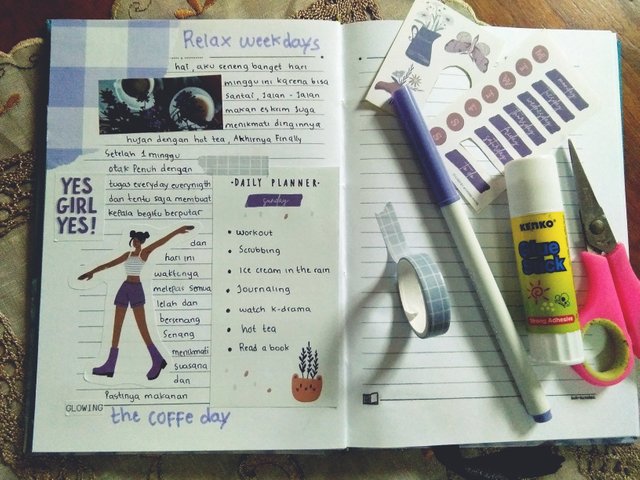 Relax weekdays
hai, aku seneng banget hari
minggu ini karena bisa
santai, Jalan - Jalan
makan es krim Juga
menikmati dinginnya
hujan dengan hot tea, Akhirnya Finally
Setelah 1 minggu
otak Penuh dengan
tugas everyday everynigth
dan tentu saja membuat
kepala begitu berputar
dan
hari ini
waktunya
melepas semua
lelah dan
bersenang
Senang
menikmati
suasana
dan
Pastinya makanan
GLOWING
the coffe day
YES
GIRL
YES!
·DAILY PLANNER·
sunday
• Workout
• Scrubbing
• Ice cream in the rain
• Journaling
• watch k-drama
• hot tea
• Read a book
monday
tuesday
wednesday
thursday
friday
saturday
to do
KENKO
Glue
Stick
Strong Adhesive